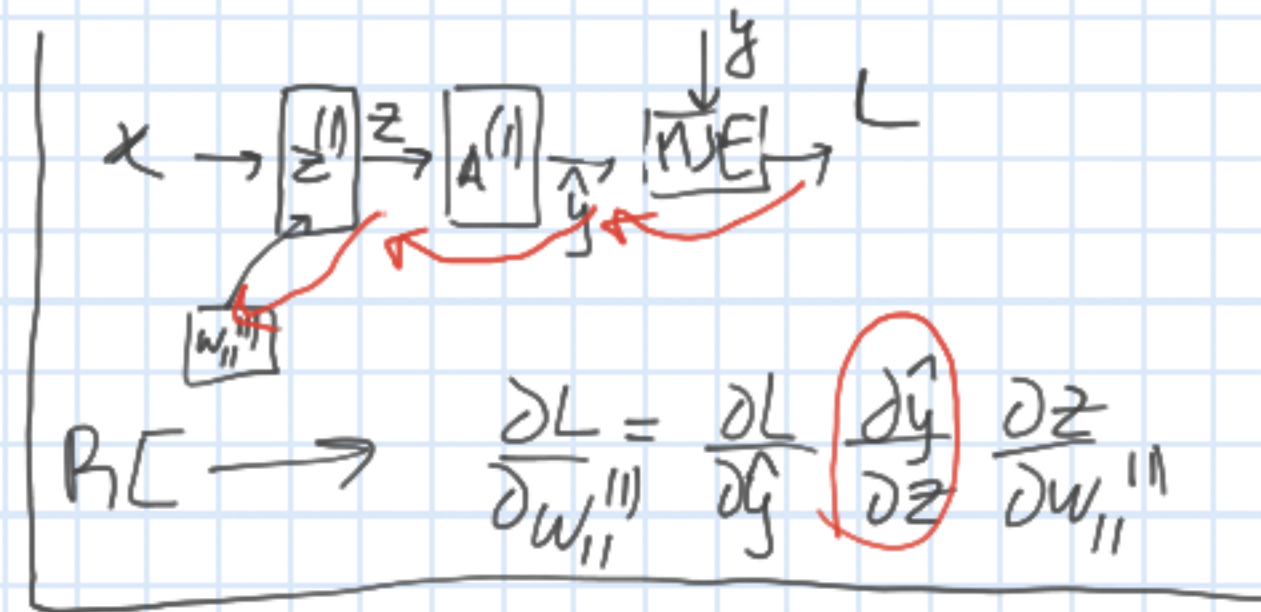 y
x → z⁽¹⁾ z → A⁽¹⁾ → ŷ MSE → L
w₁₁⁽¹⁾
RC → ∂L/∂w₁₁⁽¹⁾ = ∂L/∂ŷ ∂ŷ/∂z ∂z/∂w₁₁⁽¹⁾